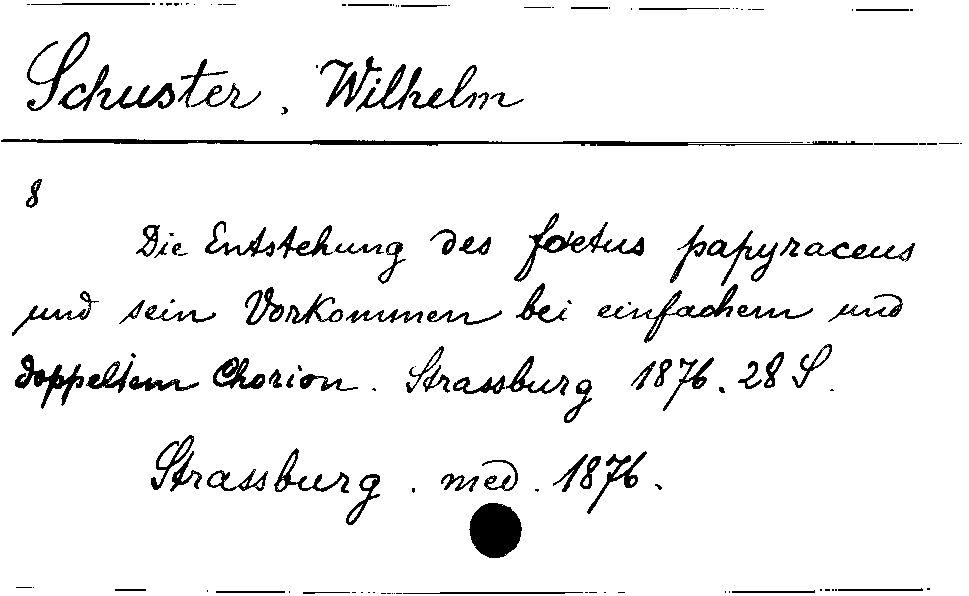 Schuster, Wilhelm
8
Die Entstehung des foetus papyraceus
und sein Vorkommen bei einfachem und
doppeltem Chorion. Strassburg 1876. 28 S.
Strassburg. med. 1876.